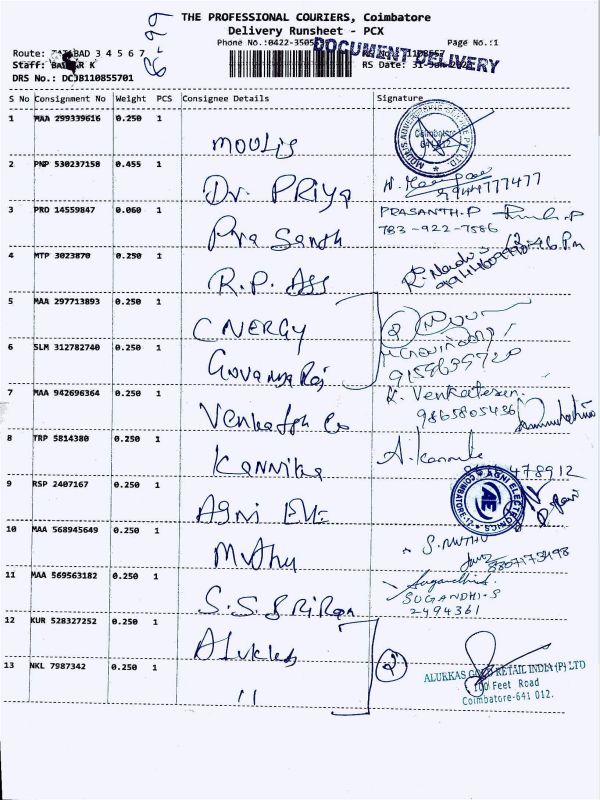 THE PROFESSIONAL COURIERS, Coimbatore
Delivery Runsheet - PCX
Phone No.:0422-3505
Page No.:1
DOCUMENT DELIVERY
Route: TATABAD 3 4 5 6 7
Staff:
RS Date:
DRS No.: DCJB110855701
S No Consignment No Weight PCS Consignee Details Signature
1 MAA 299339616 0.250 1 MOULIS
MOULIS Coimbatore 641 012
2 PNP 530237150 0.455 1 Dr. PRIYA
9944777477
3 PRO 14559847 0.060 1
PRASANTH.P
783-922-7586
4 MTP 3023870 0.250 1 R.P. ASS
5 MAA 297713893 0.250 1 CNERGY
6 SLM 312782740 0.250 1 Govanya Raj
9159639720
7 MAA 942696364 0.250 1
K. Venkatesan.
9865805436
8 TRP 5814380 0.250 1 Kannika
A. Kannika
478912
9 RSP 2407167 0.250 1 AGNI Ele
AGNI ELECTRONICS COIMBATORE-12 AE
10 MAA 568945649 0.250 1 Muthu
S. MUTHU
11 MAA 569563182 0.250 1
SUGANDHI-S
2494361
12 KUR 528327252 0.250 1 Alukkas
13 NKL 7987342 0.250 1 "
ALUKKAS GOLD RETAIL INDIA (P) LTD
100 Feet Road
Coimbatore-641 012.